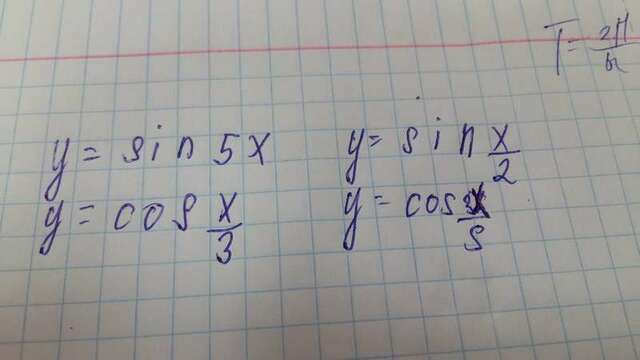 T = 2П/k
y = sin 5x
y = sin x/2
y = cos x/3
y = cos x/5